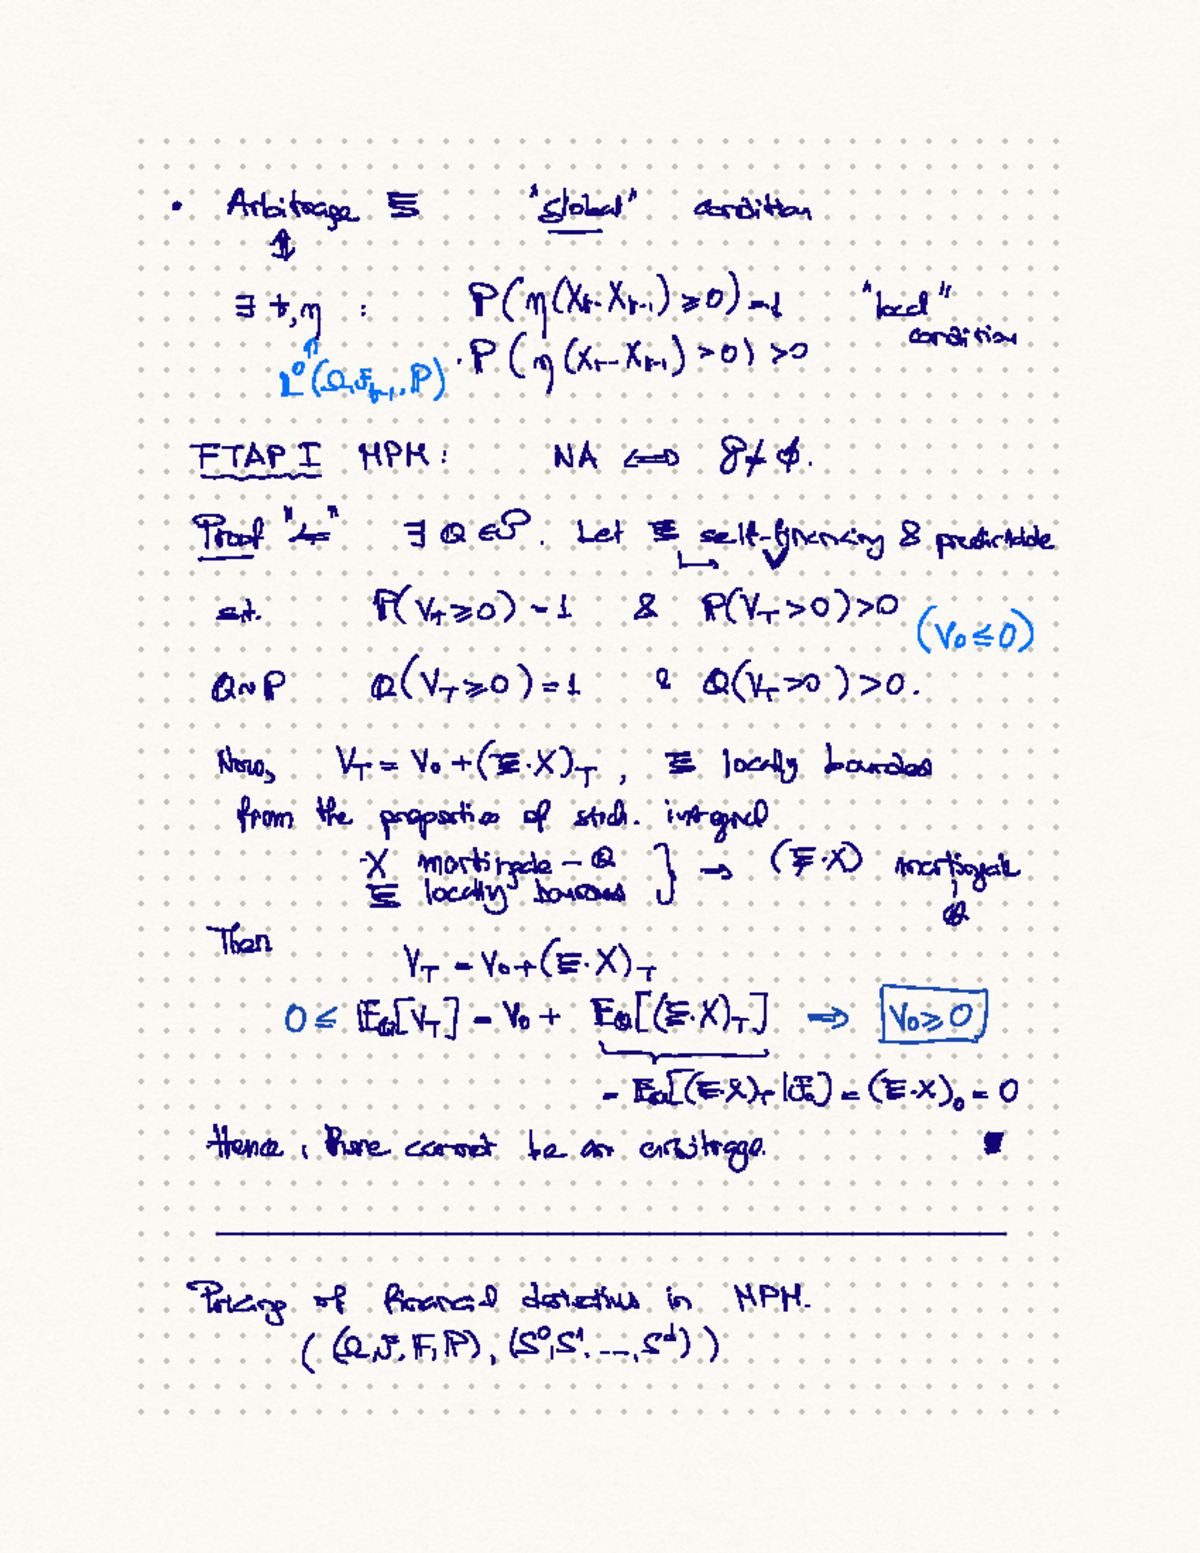 • Arbitrage Ξ "global" condition
⇕
∃ t, η : P(η(X_t - X_{t-1}) ≥ 0) = 1 "local"
condition
L⁰(Ω, F_{t-1}, P) · P(η(X_t - X_{t-1}) > 0) > 0
FTAP I MPM: NA ⟺ 𝒫 ≠ ∅.
Proof "⇐" ∃ Q ∈ 𝒫. Let Ξ self-financing & predictable
s.t. P(V_T ≥ 0) = 1 & P(V_T > 0) > 0 (V_0 ≤ 0)
Q ~ P Q(V_T ≥ 0) = 1 & Q(V_T > 0) > 0.
Now, V_T = V_0 + (Ξ·X)_T, Ξ locally bounded
from the properties of stoch. integral
X martingale - Q } → (Ξ·X) martingale
Ξ locally bounded Q
Then
V_T = V_0 + (Ξ·X)_T
0 ≤ E_Q[V_T] = V_0 + E_Q[(Ξ·X)_T] ⇒ V_0 ≥ 0
= E_Q[(Ξ·X)_T | F_0] = (Ξ·X)_0 = 0
Hence, there cannot be an arbitrage. ■
Pricing of financial derivatives in MPM.
((Ω, F, F, P), (S⁰, S¹, ..., S^d))